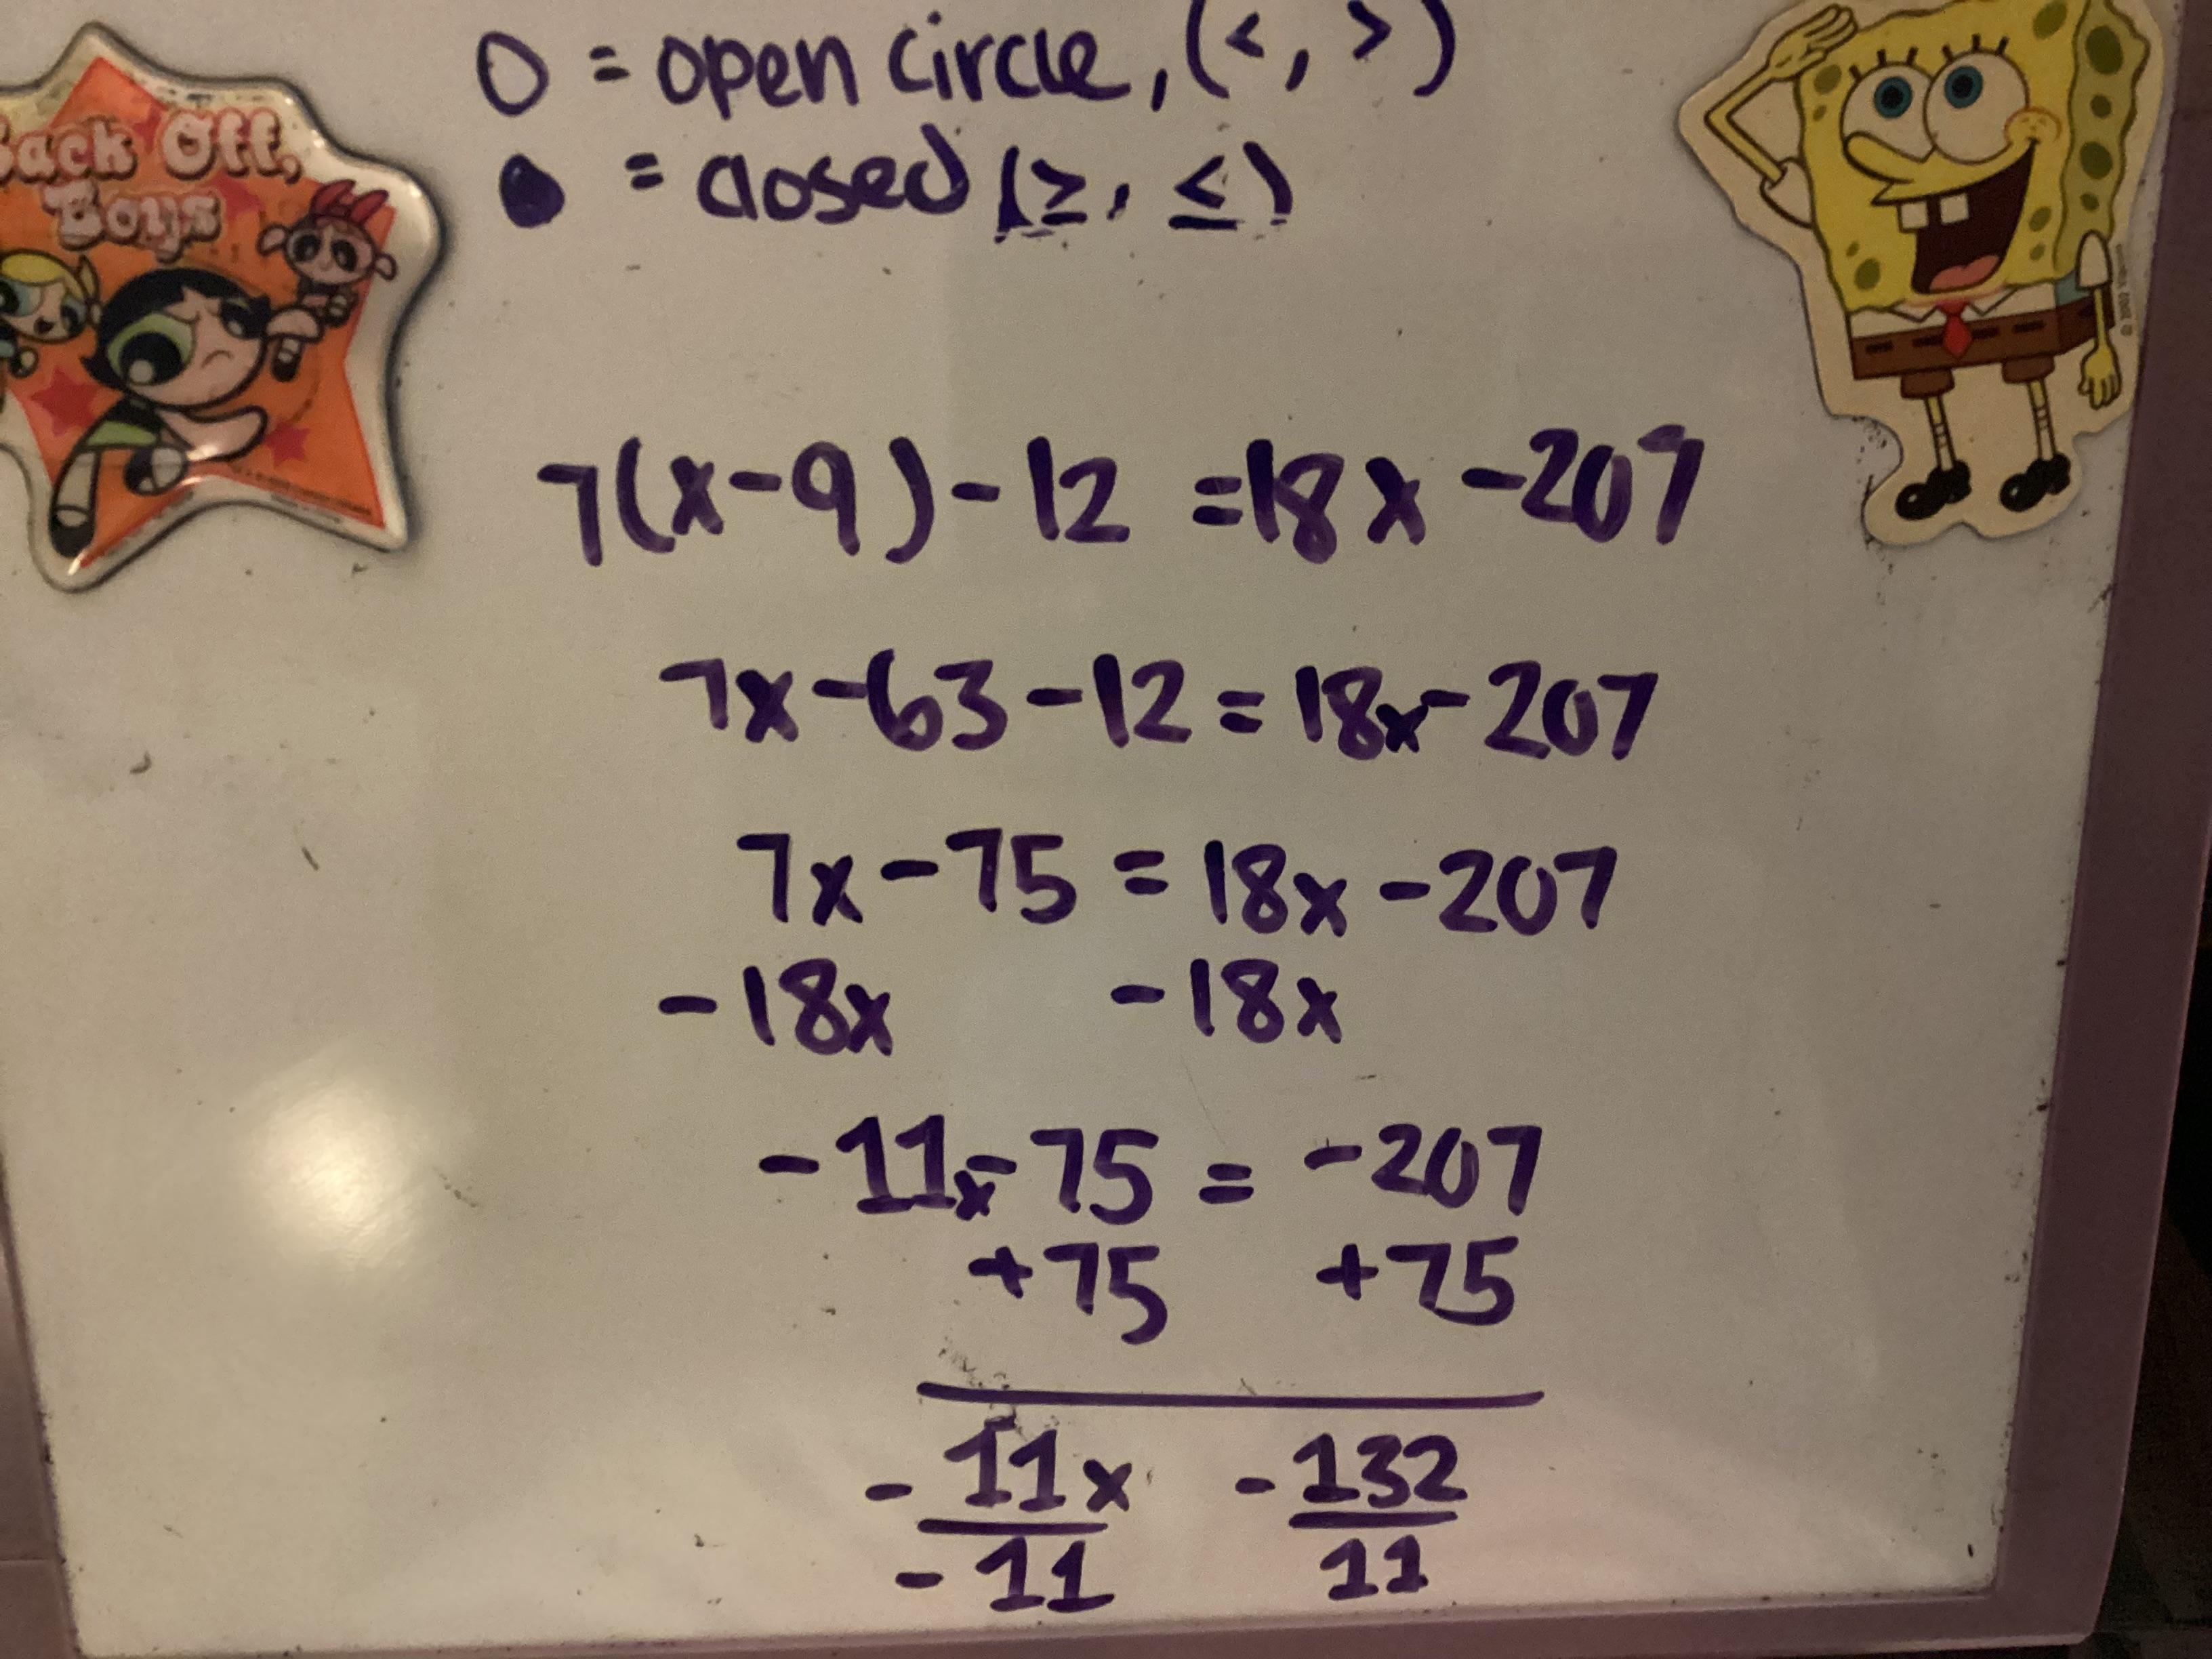 O = open circle, (<, >)
● = closed (≥, ≤)
Back Off,
Boys
7(x-9)-12 =18x -207
7x-63-12=18x-207
7x-75=18x-207
-18x -18x
-11x-75 = -207
+75 +75
-11x -132
-11 11